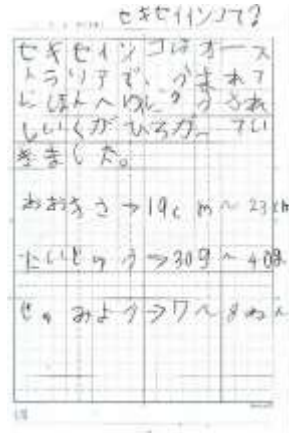 セキセイインコって?
セキセイインコはオース
トラリアで、うまれて
にほんへゆにゅうされ
しいくがひろがってい
きました。
おおきさ→19cm〜23cm
たいじゅう→30g〜40g
じゅみょう→7〜8ねん